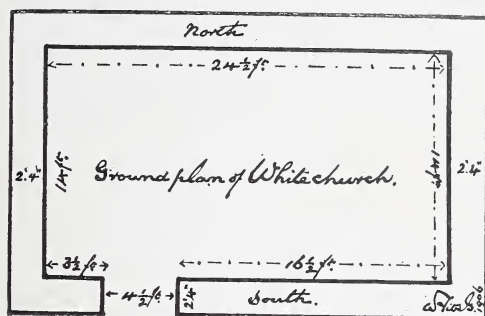 North
24½ ft.
2'.4" 14 ft. Ground plan of Whitechurch. 14 ft. 2'.4"
3½ ft. 16½ ft.
4½ ft. 2'.4" South.
1906